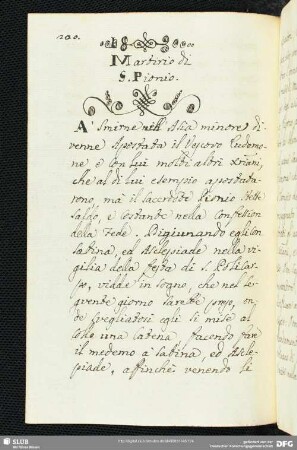 200.
Martirio di
S. Pionio.
A' Smirne nell' Asia minore di-
venne Apostata il Vescovo Eudemo-
ne e con lui molti altri Xriani,
che al di lui esempio apostata-
vono, mà il Sacerdote Pionio stette
saldo, e costante nella Confession
della Fede. Digiunando egli con
Sabina, ed Asclepiade nella vi-
gilia della festa di S. Policar-
po, vidde in sogno, che nel se-
guente giorno sarette preso, on-
de svegliatosi egli si mise al
Collo una Catena, facendo fare
il medemo à Sabina, ed Ascle-
piade, affinchè venendo li
SLUB
Wir führen Wissen.
gefördert von der
Deutschen Forschungsgemeinschaft
DFG